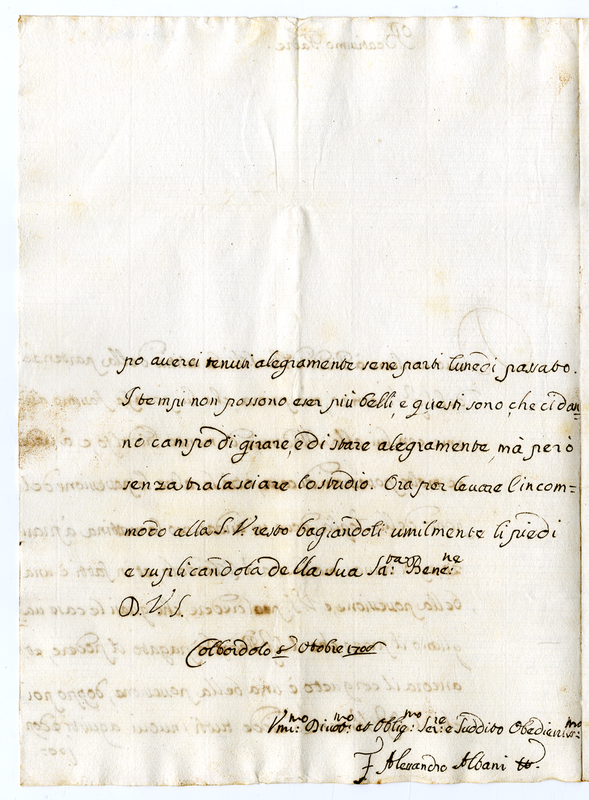 po averci tenuti alegramente sene parti lunedi passato.
I tempi non possono eser più belli e questi sono, che ci dan
no campo di girare, è di stare alegramente, mà però
senza tralasciare lo studio. Ora per levare l'incom=
modo alla S. V. resto bagiandoli umilmente li piedi
e suplicandola della sua Sa:ta Bene:ne
D. V. S.
Colbordolo Otobre 1706
Vmi:mo Divot:mo et Oblig:mo Ser:re e Suddito Obedient:mo
Alessandro Albani